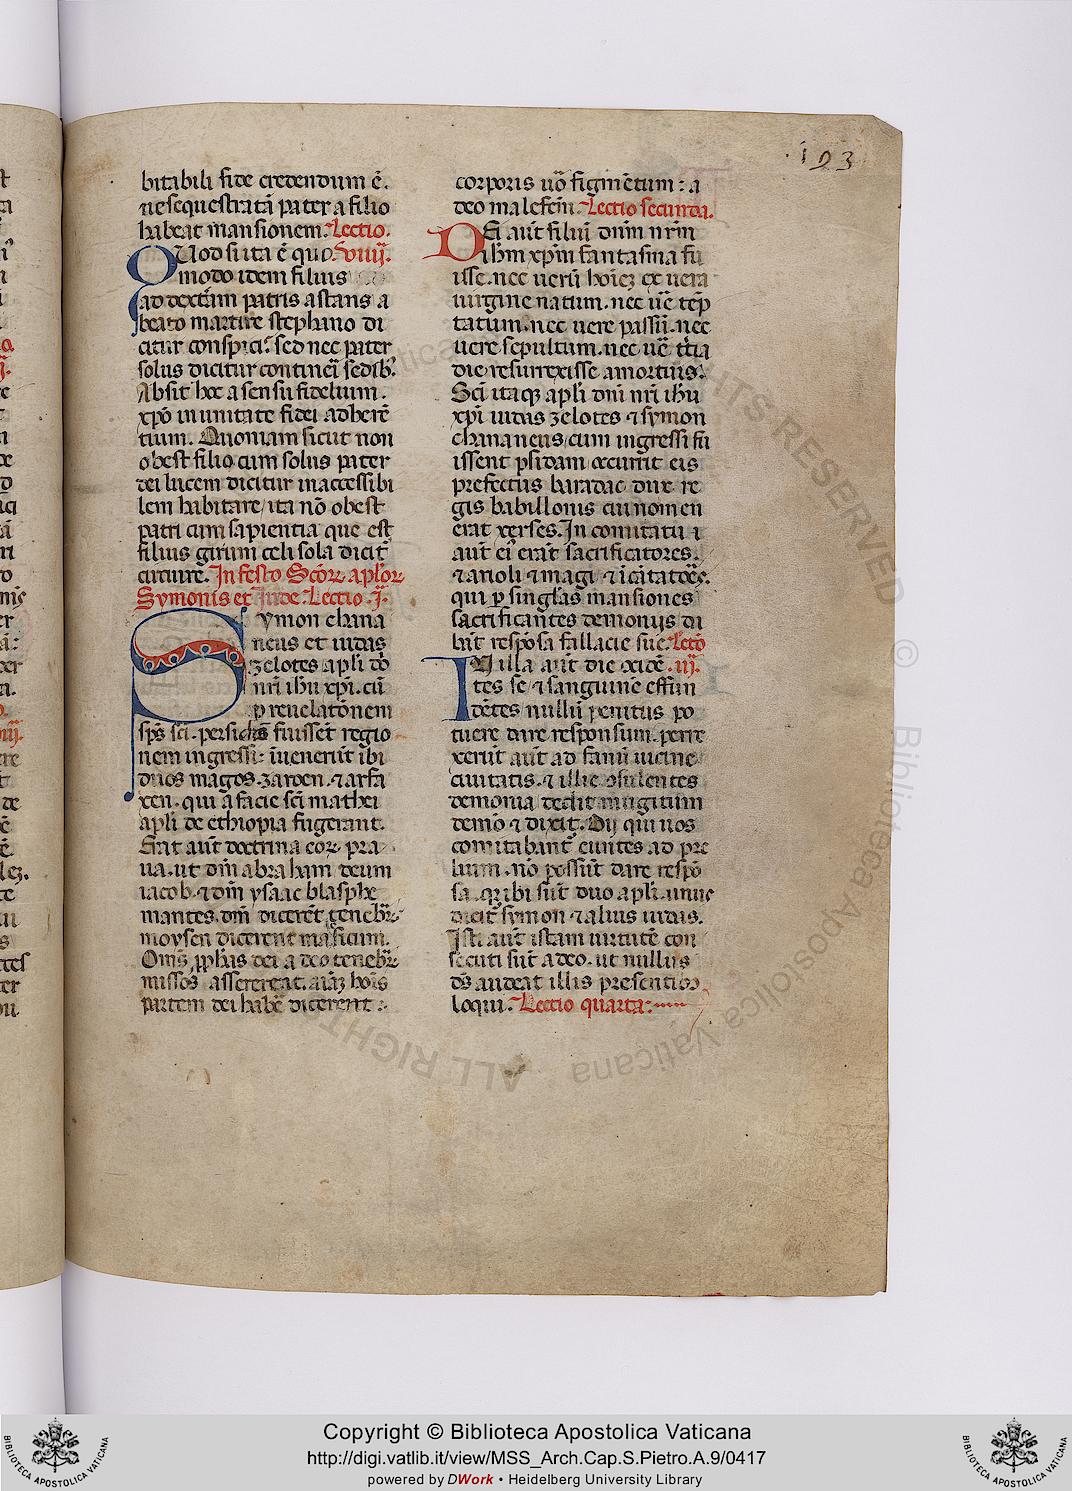 193
bitabili fide credendum ē.
ne sequestratā pater a filio
habeat mansionem. Lectio.
Quod si ita ē quo viiij.
modo idem filius
ad dextrām patris astans a
beato martire stephano di
citur conspici. sed nec pater
solus dicitur contineri
Absit hoc a sensu fidelium.
xpō in unitate fidei adherē
tium. Quoniam sicut non
obest filio cum solus pater
dei lucem dicitur inaccessibi
lem habitare, ita nō obest
patri cum sapientia que est
filius girum celi sola dicit̄
circuire. In festo Scōrꝝ aplōrꝝ
Symonis et Iude. Lectio .i.
Symon chana
neus et iudas
zelotes apli dō
nri ihu xpi. cū
p reuelatōnem
sps sci. persidis fuissēt regio
nem ingressi: īuenerūt ibi
duos magos. zaroen. ⁊ arfa
xen. qui a facie scī mathei
apli de ethiopia fugerant.
Erat aut̄ doctrina eorꝝ pra
ua. ut dm̄ abraham deum
iacob. ⁊ dm̄ ysaac blasphe
mantes. dm̄ dicerēt tenebrꝝ.
moysen dicerent magicum.
Omīs pphās dei a deo tenebrꝝ
missos assererent. hoīs
partem dei habē dicerent :
corporis uō figmētum : a
deo male fcm̄. Lectio secunda.
Dei aut̄ filiū dnm̄ nrm̄
ihm xpm̄ fantasma fu
isse. nec uerū hoīez ex uera
uirgine natum. nec ue tēp
tatum. nec uere passū. nec
uere sepultum. nec ue tt̄ia
die resurrexisse a mortuis.
Scī itaqꝫ apli dni nri ihu
xpi iudas zelotes ⁊ symon
chananeus, cum ingressi fu
issent psidam occurrit eis
prefectus baradac dux re
gis babillonis cui nomen
erat xerses. In comitatu
aut̄ eī erāt sacrificatores.
⁊ arioli ⁊ magi ⁊ īcātatōes.
qui p singlas mansiones
sacrificantes demoniis da
bāt respōsa fallacie sue. Lectō
In illa aut̄ die .iij.
tes se ⁊ sanguinē effun
dētes nullū penitus po
tuere dare responsum. perre
xerūt aut̄ ad fanū uicine
ciuitatis. ⁊ illic ↄsulentes
demonia dedit mugitum
demō ⁊ dixit. Dij qui uos
comitabant̄ euntes ad pre
lium. nō possūt dare respō
sa. qꝛ ibi sūt duo apli. unus
dicit̄ symon ⁊ alius iudas.
Isti aut̄ istam uirtutē con
secuti sūt a deo. ut nullus
dō audeat illis presentibꝫ
loqui. Lectio quarta:
ALL RIGHTS RESERVED © Biblioteca Apostolica Vaticana
Copyright © Biblioteca Apostolica Vaticana
http://digi.vatlib.it/view/MSS_Arch.Cap.S.Pietro.A.9/0417
powered by DWork • Heidelberg University Library
BIBLIOTECA APOSTOLICA VATICANA
BIBLIOTECA APOSTOLICA VATICANA